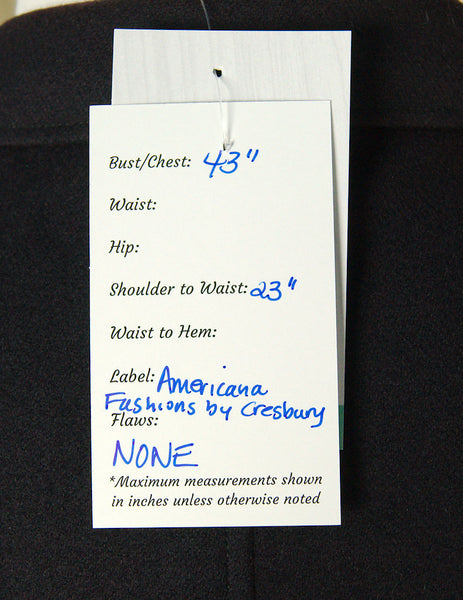 Bust/Chest: 43"
Waist:
Hip:
Shoulder to Waist: 23"
Waist to Hem:
Label: Americana
Fashions by Cresbury
Flaws:
NONE
*Maximum measurements shown
in inches unless otherwise noted